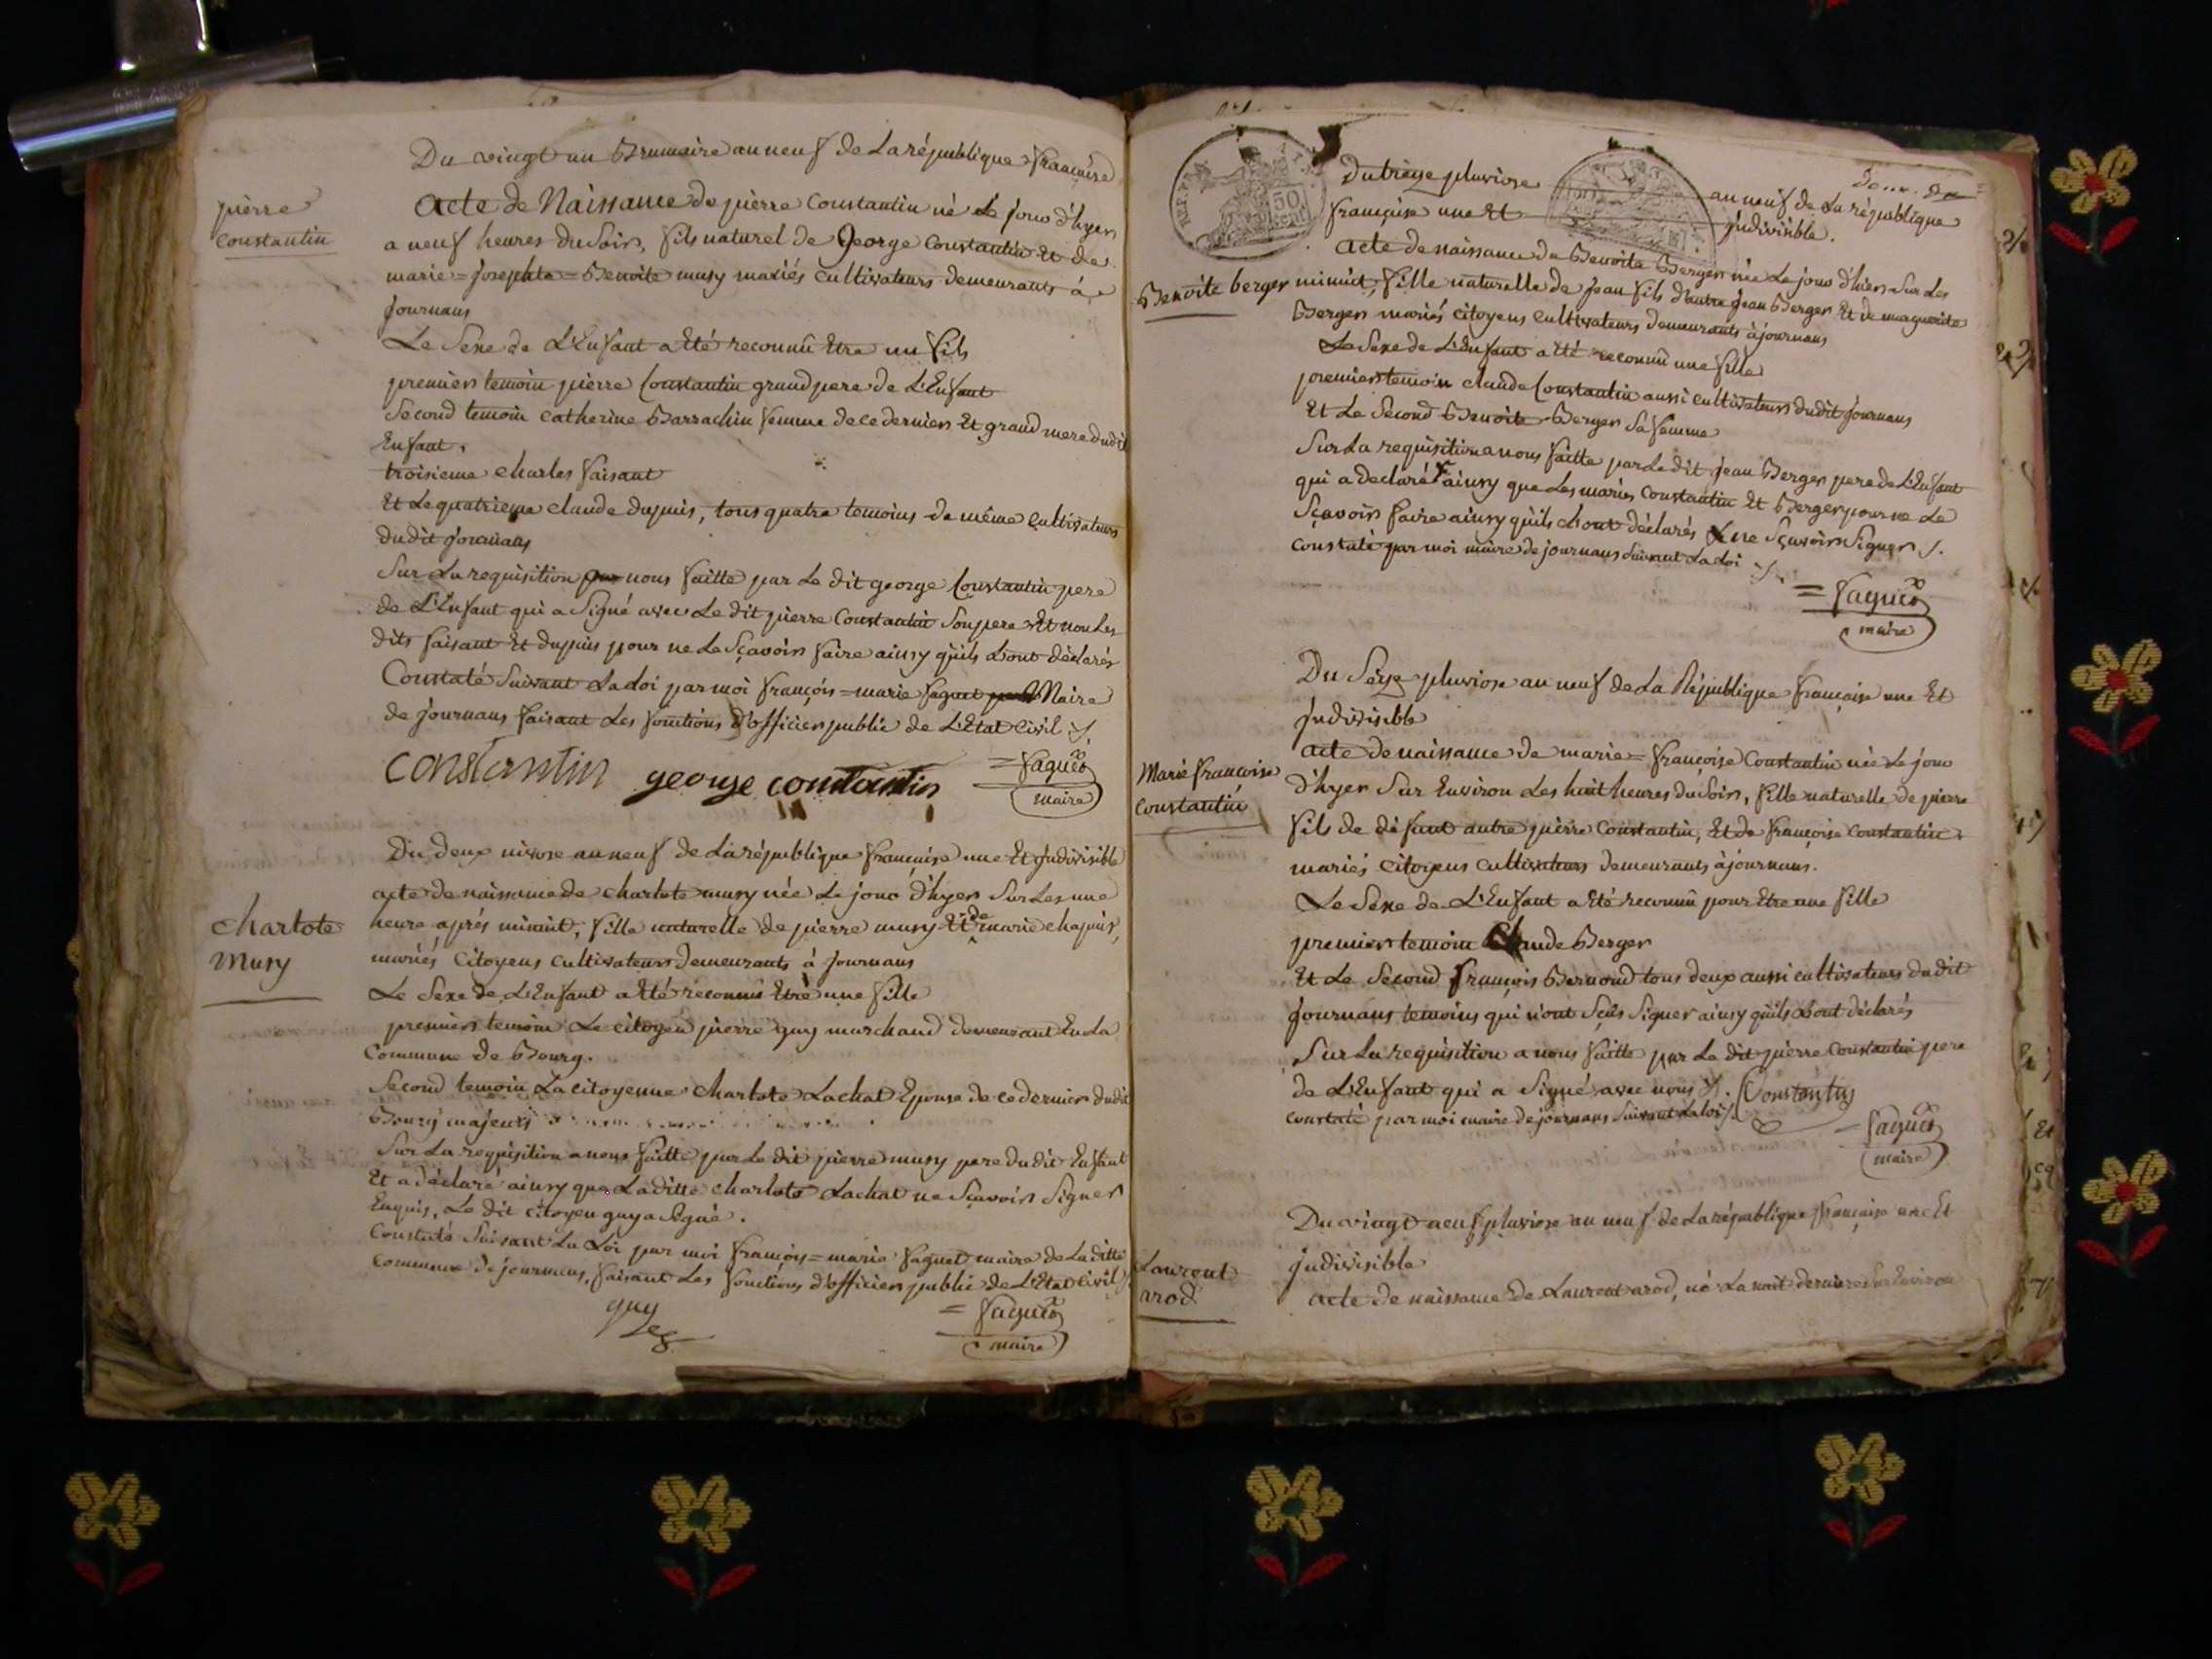 Du vingt un Brumaire an neuf de La république française
pierre
constantin
acte de Naissance de pierre Constantin né Le jour d'hyer
a neuf heures du Soir, fils naturel de George Constantin Et de
marie=josephte=Benoite musy mariés cultivateurs demeurants à
journans
Le Sexe de L'Enfant a Eté reconnû Etre un fils
premier temoin pierre Constantin grand pere de L'Enfant
Second temoin catherine Barrachin femme de ce dernier Et grand mere dudit
Enfant.
troisieme charles faisant
Et Le quatrieme claude dupuis, tous quatre temoins de même cultivateurs
dudit journans
Sur La requisition nous faitte par Le dit george Constantin pere
de L'Enfant qui a Signé avec Le dit pierre Constantin Son pere Et non Les
dits faisant Et dupuis pour ne Le Sçavoir faire ainsy qu'ils L'ont déclarés
Constaté Suivant La Loi par moi françois=marie faguet Maire
de journans faisant Les fonctions d'officier public de L'Etat Civil ./.
constantin george constantin = faguet
maire
Du deux nivose an neuf de La république française une Et indivisible
charlote
Musy
acte de naissance de charlote musy née Le jour d'hyer Sur Les une
heure après minuit, fille naturelle de pierre musy Et de marie chapuis,
mariés Citoyens cultivateurs demeurants à journans
Le Sexe de L'Enfant a Eté reconnû Etre une fille
premier temoin Le citoyen pierre guy marchand demeurant En La
Commune de Bourg.
Second temoin La citoyenne charlote Lachat Epouse de ce dernier dudit
Bourg majeurs
Sur La requisition a nous faitte par Le dit pierre musy pere du dit Enfant
Et a déclaré ainsy que La ditte charlote Lachat ne Sçavoir Signer
Enquis, Le dit citoyen guy a Signé.
Constaté Suivant La Loi par moi françois=marie faguet maire de La ditte
commune de journans, faisant Les fonctions d'officier public de L'Etat Civil
guy = faguet
maire
50
Du treize pluviose an neuf de La république
française une Et indivisible.
Benoite berger
acte de naissance de Benoite Berger née Le jour d'hier Sur Les
minuit, fille naturelle de jean fils d'autre jean Berger Et de marguerite
Berger mariés citoyens cultivateurs demeurants à journans
Le Sexe de L'Enfant a Eté reconnû une fille
premier temoin claude Constantin aussi cultivateur dudit journans
Et Le Second Benoite Berger Sa femme
Sur La requisition a nous faitte par Le dit jean Berger pere de L'Enfant
qui a declaré ainsy que Les mariés Constantin Et Berger pour ne Le
Sçavoir faire ainsy qu'ils L'ont déclarés ne Sçavoir Signer ./.
constaté par moi maire de journans Suivant La Loi ./.
= faguet
maire
Du Seize pluviose an neuf de La République française une Et
indivisible
Marie françoise
constantin
acte de naissance de marie=françoise Constantin née Le jour
d'hyer Sur Environ Les huit heures du Soir, fille naturelle de pierre
fils de défunt autre pierre Constantin, Et de françoise Constantin
mariés Citoyens cultivateurs demeurants à journans.
Le Sexe de L'Enfant a Eté reconnû pour Etre une fille
premier temoin Claude Berger
Et Le Second françois Bernond tous deux aussi cultivateurs dudit
journans temoins qui n'ont Sçûs Signer ainsy qu'ils L'ont déclarés
Sur La requisition a nous faitte par Le dit pierre Constantin pere
de L'Enfant qui a Signé avec nous ./. Constantin
constaté par moi maire de journans Suivant La Loi ./.
= faguet
maire
Du vingt neuf pluviose an neuf de La république française une Et
indivisible
Laurent
arod
acte de naissance de Laurent arod, né La nuit derniere Sur Environ